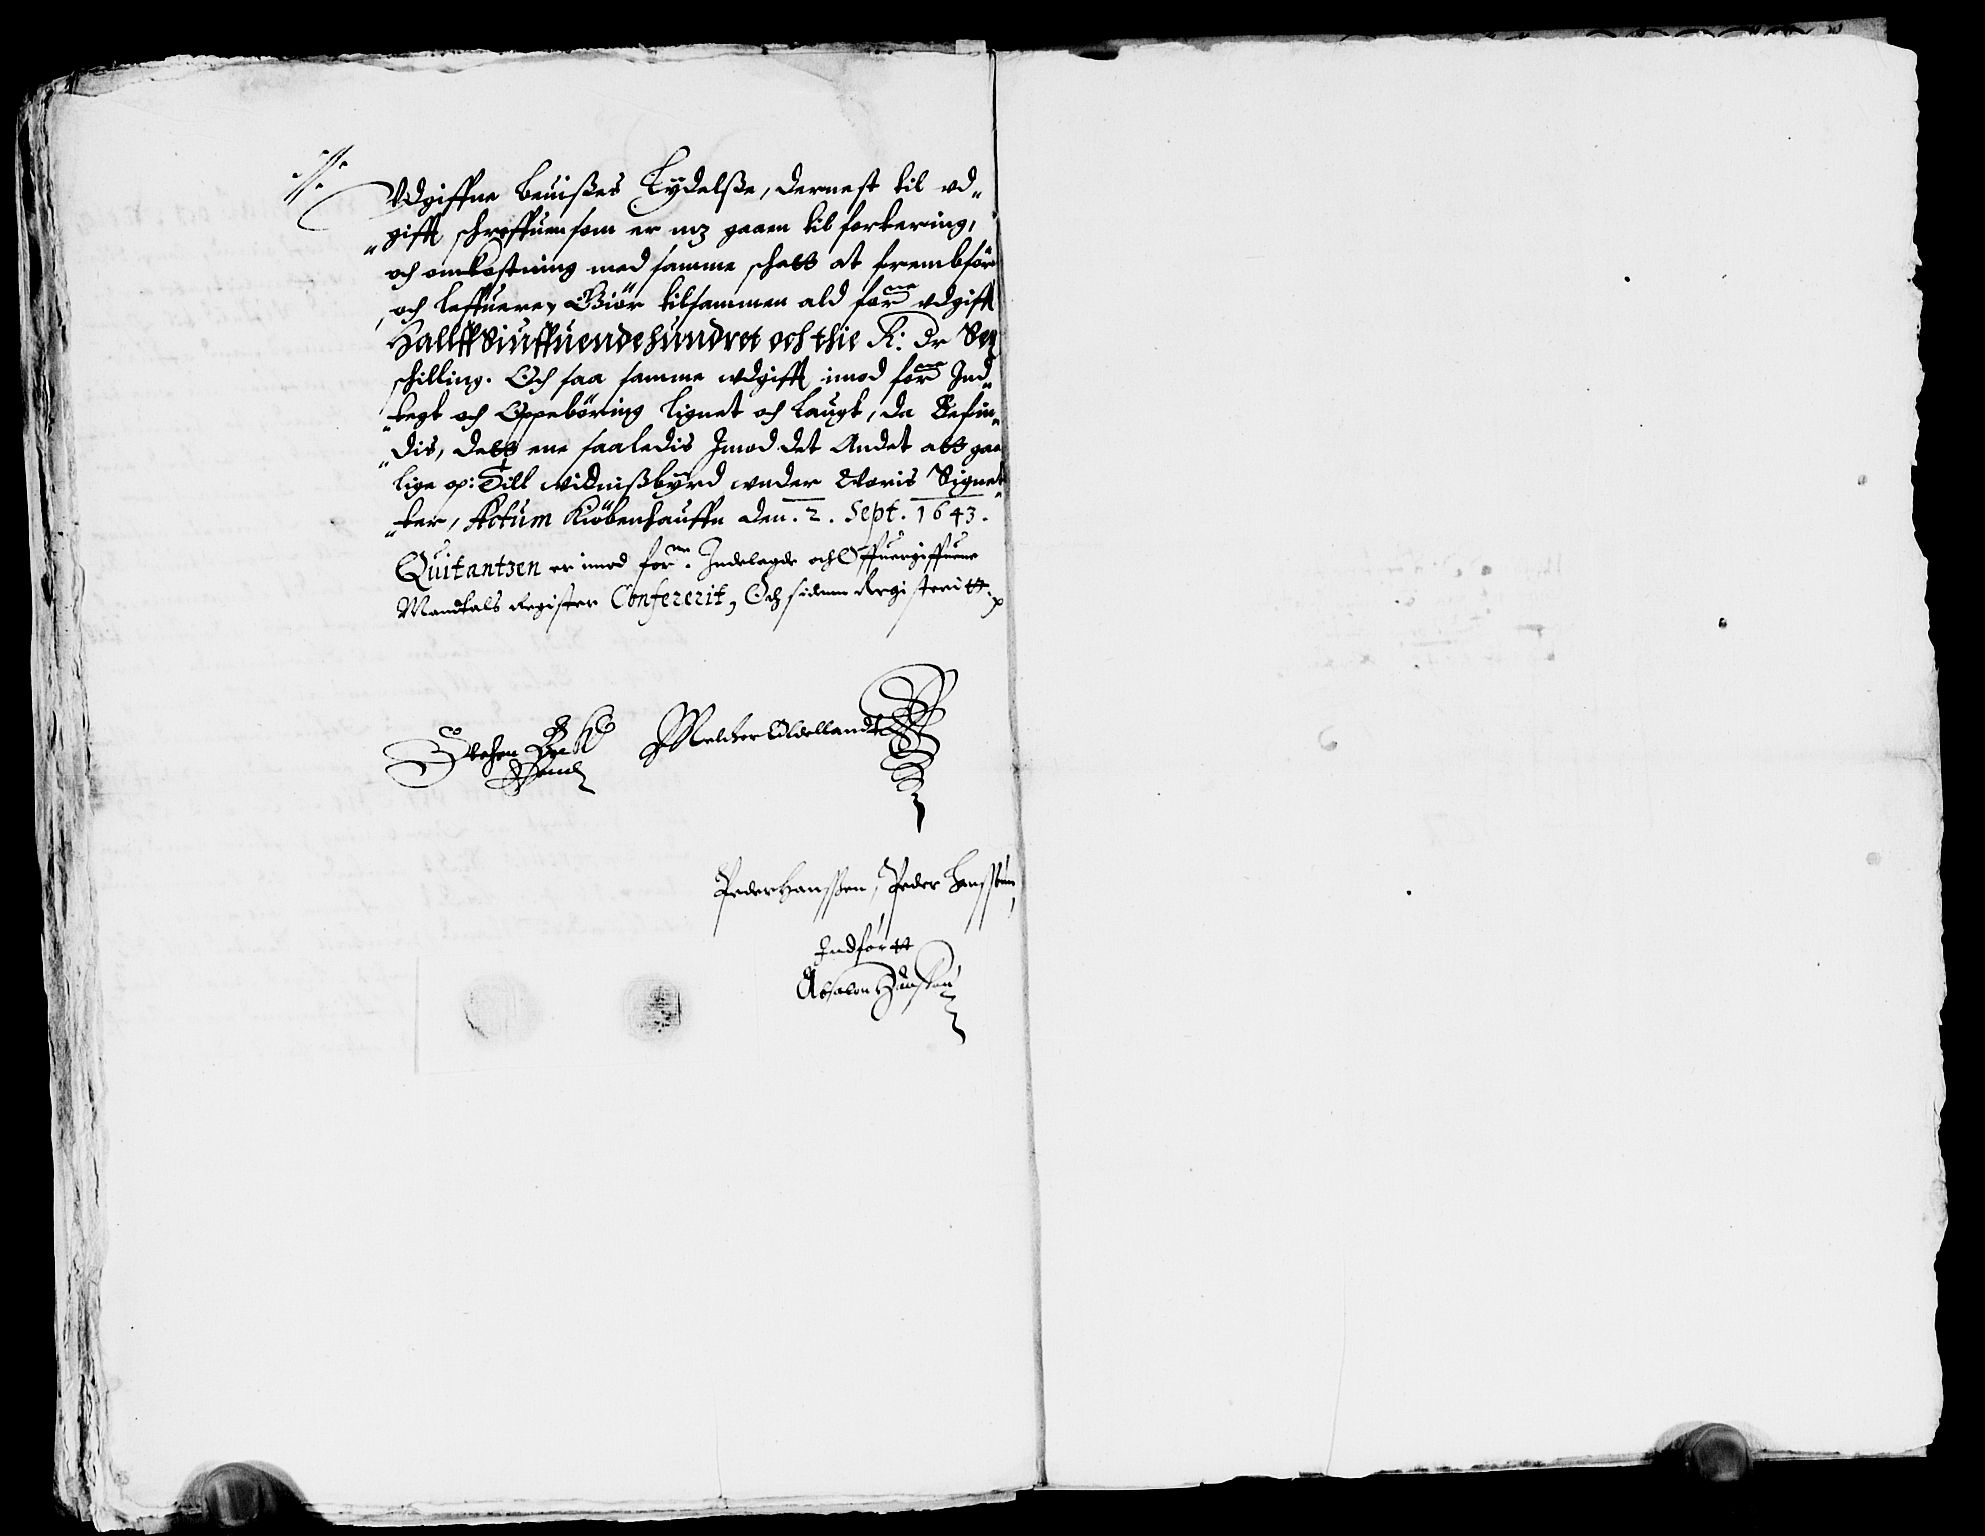 Vdgiffne beuißes Lydelße, dernest til vd„
„gifft schreffuen som er mz gaaen til forhering,
och omkostning med samme schatt at frembföre
och leffuere, Giör tilsammen ald forne vdgifft
Halfft Siuffuende hundret och thie R: dr Sex
schilling. Och saa samme vdgifft imod forne Ind„
„tegt och Oppeböring lignet och laugt, da Befin„
„dis, dett ene saaledis Imod det Andet att gaa
lige op: Till vidnißbyrd vnder Voris Signet„
„ter, Actum Kiöbenhauffn den. 2. Sept. 1643.
Quitantzen er imod forne. Indelagde och Offuergiffuene
Mandtals Register Confererit, Och siden Registeritt.
Melcker Oldellandt
Peder Hanssen, Peder Hanssen
Indfortt
Absalon Hanssen